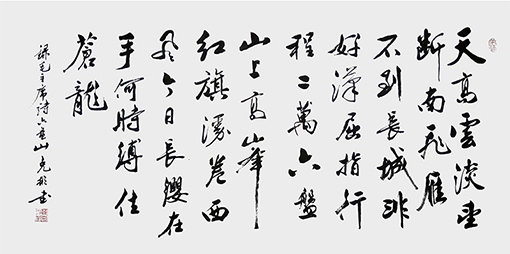 天高雲淡望
断南飛雁
不到長城非
好漢屈指行
程二萬六盤
山上高山峰
红旗漫卷西
风今日長缨在
手何時縛住
蒼龍
录毛主席诗六盘山 克 书